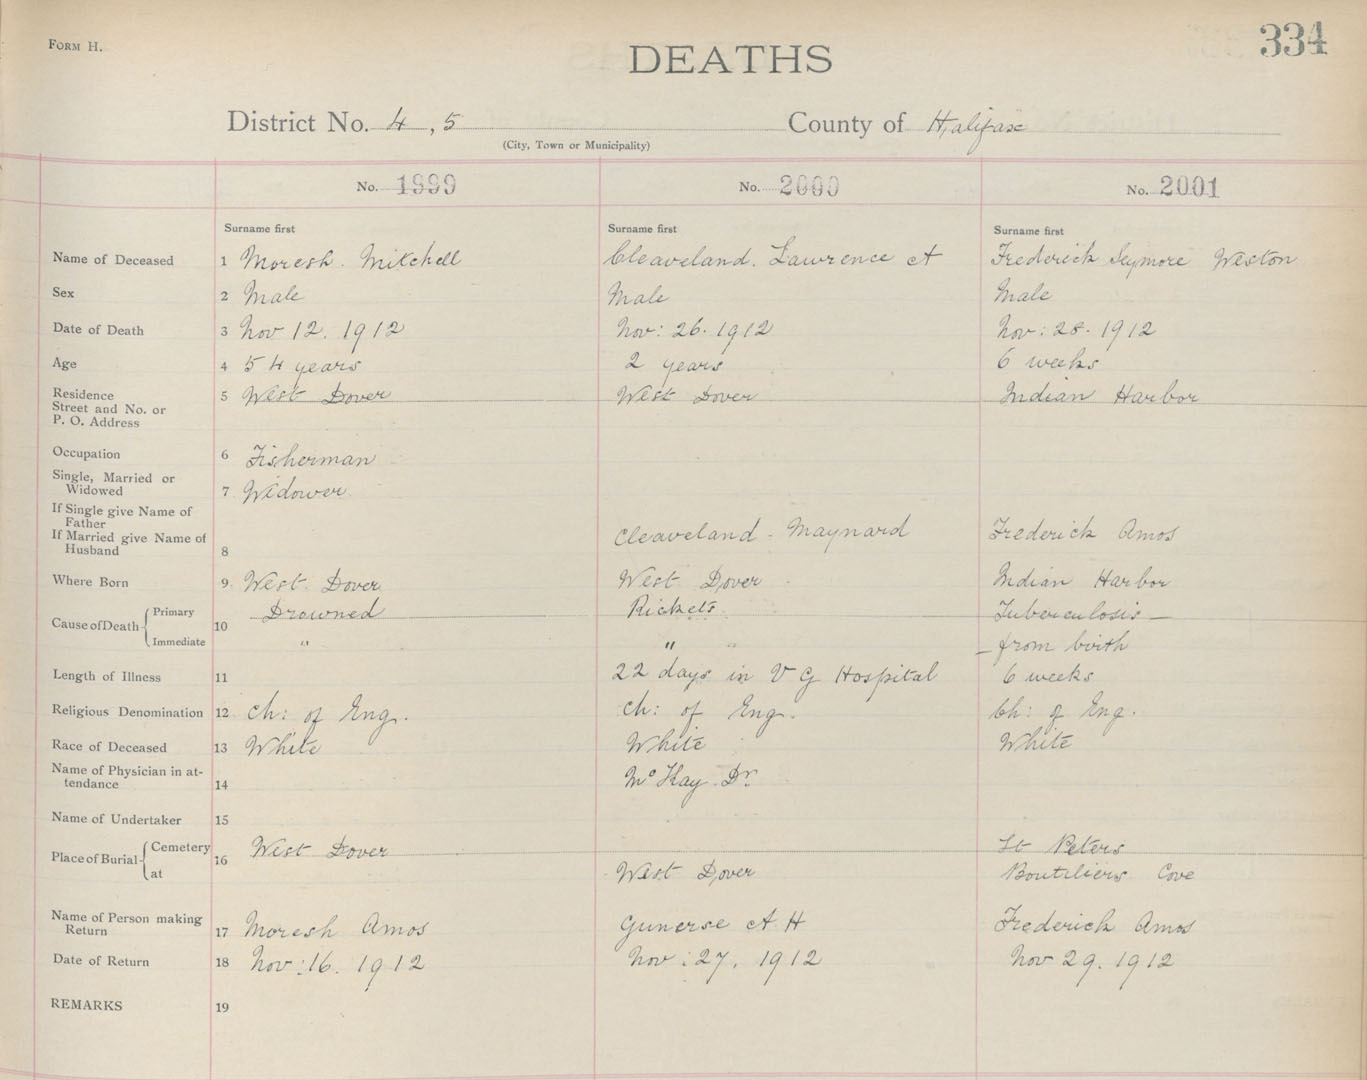 FORM H.
334
DEATHS
District No. 4, 5 County of Halifax
(City, Town or Municipality)
No. 1999 No. 2000 No. 2001
Surname first Surname first Surname first
Name of Deceased 1 Moresh. Mitchell Cleaveland. Lawrence A Frederick Seymore Weston
Sex 2 Male Male Male
Date of Death 3 Nov 12. 1912 Nov: 26. 1912 Nov: 28. 1912
Age 4 54 years 2 years 6 weeks
Residence 5 West Dover West Dover Indian Harbor
Street and No. or
P. O. Address
Occupation 6 Fisherman
Single, Married or
Widowed 7 Widower
If Single give Name of
Father
If Married give Name of Cleaveland - Maynard Frederick Amos
Husband 8
Where Born 9. West Dover West Dover Indian Harbor
Cause of Death Primary 10 Drowned Rickets Tuberculosis —
Immediate " " " – from birth
Length of Illness 11 22 days in V G Hospital 6 weeks
Religious Denomination 12 Ch: of Eng. Ch: of Eng. Ch: of Eng.
Race of Deceased 13 White White White
Name of Physician in at-
tendance 14 McKay Dr
Name of Undertaker 15
Place of Burial Cemetery 16 West Dover St Peters
at West Dover Boutiliers Cove
Name of Person making
Return 17 Moresh Amos A H Frederick Amos
Date of Return 18 Nov: 16. 1912 Nov: 27. 1912 Nov 29. 1912
REMARKS 19